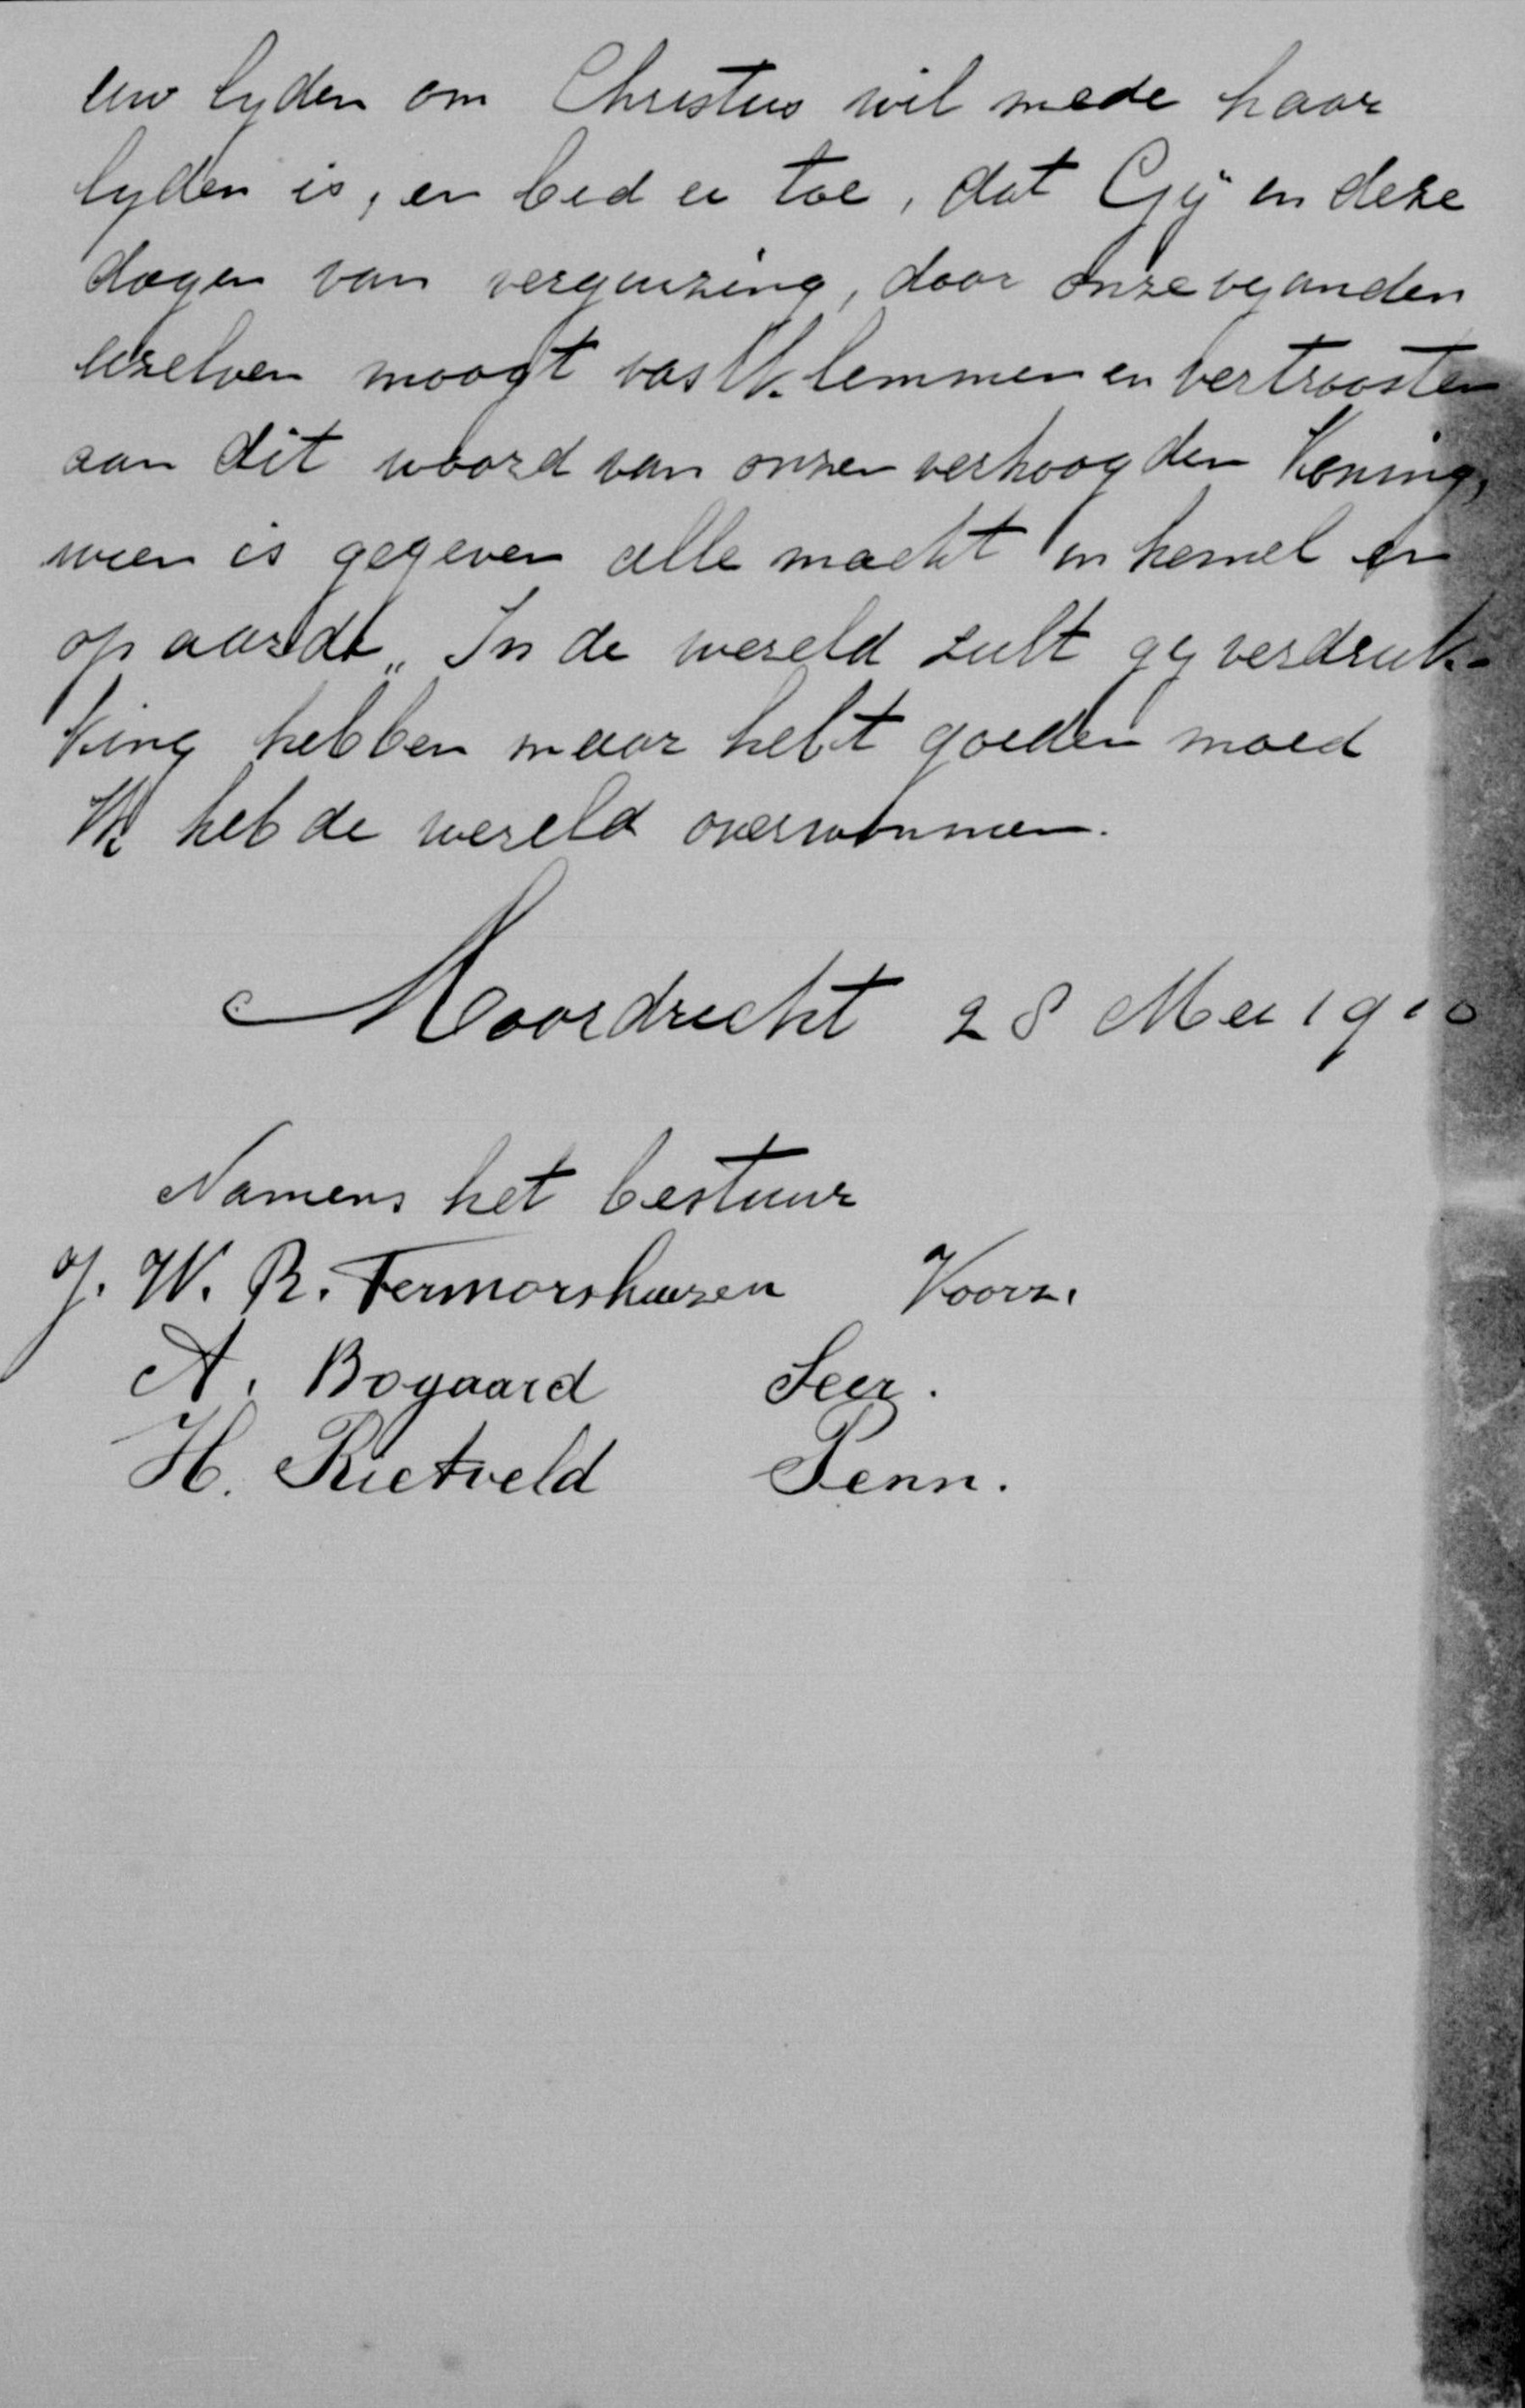 uw lyden om Christus wil mede haar
lyden is, en bid er toe, dat Gij in deze
dagen van verguizing, door onze vyanden
uzelven moogt vastklemmen en vertroosten
aan dit woord van onzen verhoogden Koning,
wien is gegeven alle macht in hemel en
op aarde „ In de wereld zult gy verdruk-
king hebben maar hebt goeden moed
Ik heb de wereld overwonnen.
Moordrecht 28 Mei 1910
Namens het bestuur
J. W. R. Termorshuizen Voorz.
A. Bogaard Secr.
H. Rietveld Penn.